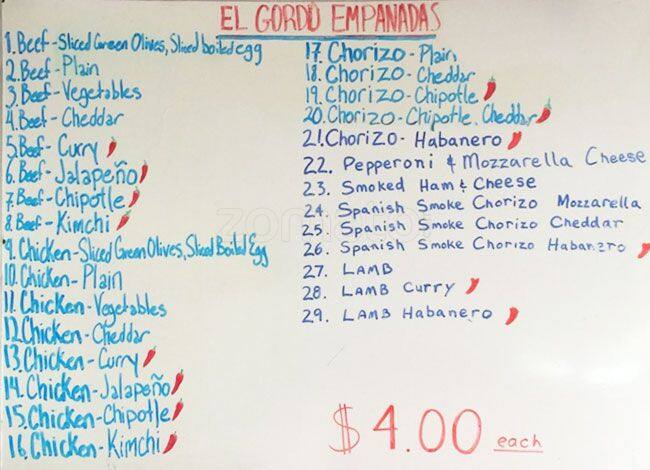 EL GORDO EMPANADAS
1. Beef-Sliced Green Olives, Sliced boiled egg
2. Beef-Plain
3. Beef-Vegetables
4. Beef-Cheddar
5. Beef-Curry
6. Beef-Jalapeño
7. Beef-Chipotle
8. Beef-Kimchi
9. Chicken-Sliced Green Olives, Sliced Boiled Egg
10. Chicken-Plain
11. Chicken-Vegetables
12. Chicken-Cheddar
13. Chicken-Curry
14. Chicken-Jalapeño
15. Chicken-Chipotle
16. Chicken-Kimchi
17. Chorizo-Plain
18. Chorizo-Cheddar
19. Chorizo-Chipotle
20. Chorizo-Chipotle, Cheddar
21. Chorizo-Habanero
22. Pepperoni & Mozzarella Cheese
23. Smoked Ham & Cheese
24. Spanish Smoke Chorizo Mozzarella
25. Spanish Smoke Chorizo Cheddar
26. Spanish Smoke Chorizo Habanero
27. LAMB
28. LAMB Curry
29. LAMB Habanero
$4.00 each